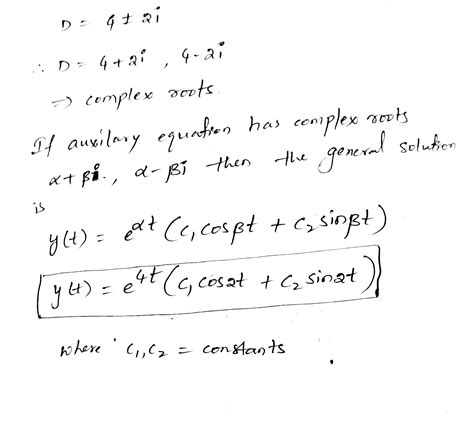 D = 4 ± 2i
∴ D = 4 + 2i , 4 - 2i
⇒ complex roots
If auxilary equation has complex roots
α + βi , α - βi then the general solution
is
y(t) = e^{αt} (C₁ cosβt + C₂ sinβt)
y(t) = e^{4t} (C₁ cos2t + C₂ sin2t)
where C₁, C₂ = constants